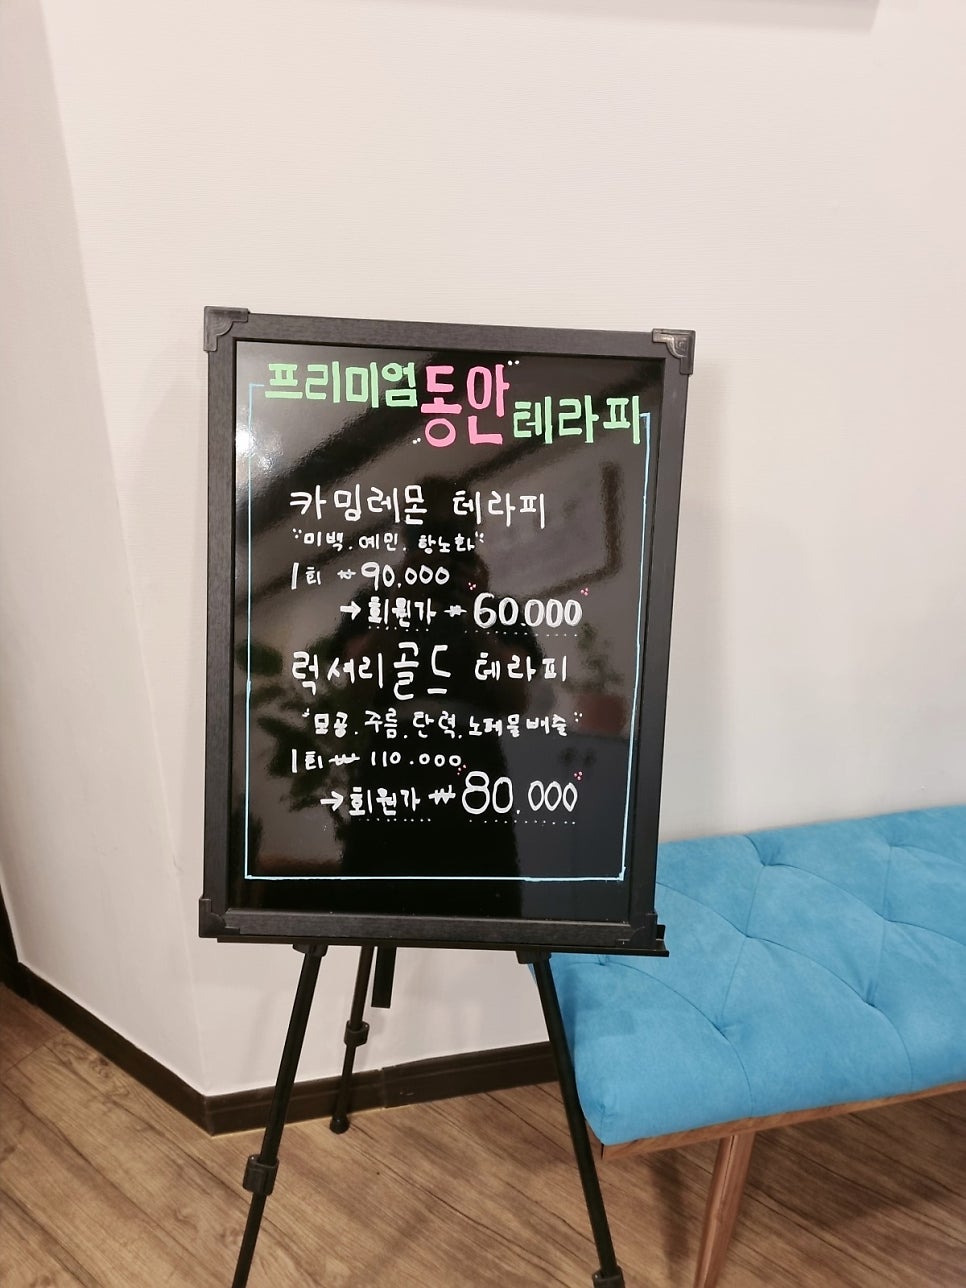 프리미엄 동안 테라피
카밍레몬 테라피
"미백. 예민. 항노화"
1회 ₩90.000
→회원가 ₩60.000
럭셔리골드 테라피
"모공. 주름. 탄력. 노폐물배출"
1회 ₩110.000
→회원가 ₩80.000